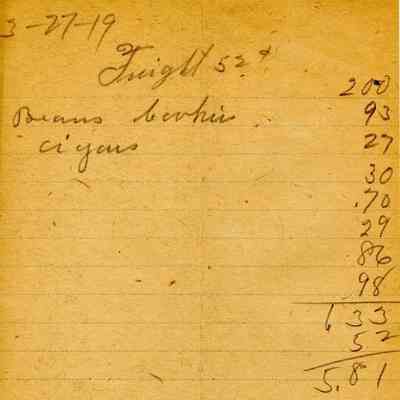 3-27-19
Freight 52¢
200
Beans 93
cigars 27
30
.70
29
86
.98
633
52
5.81